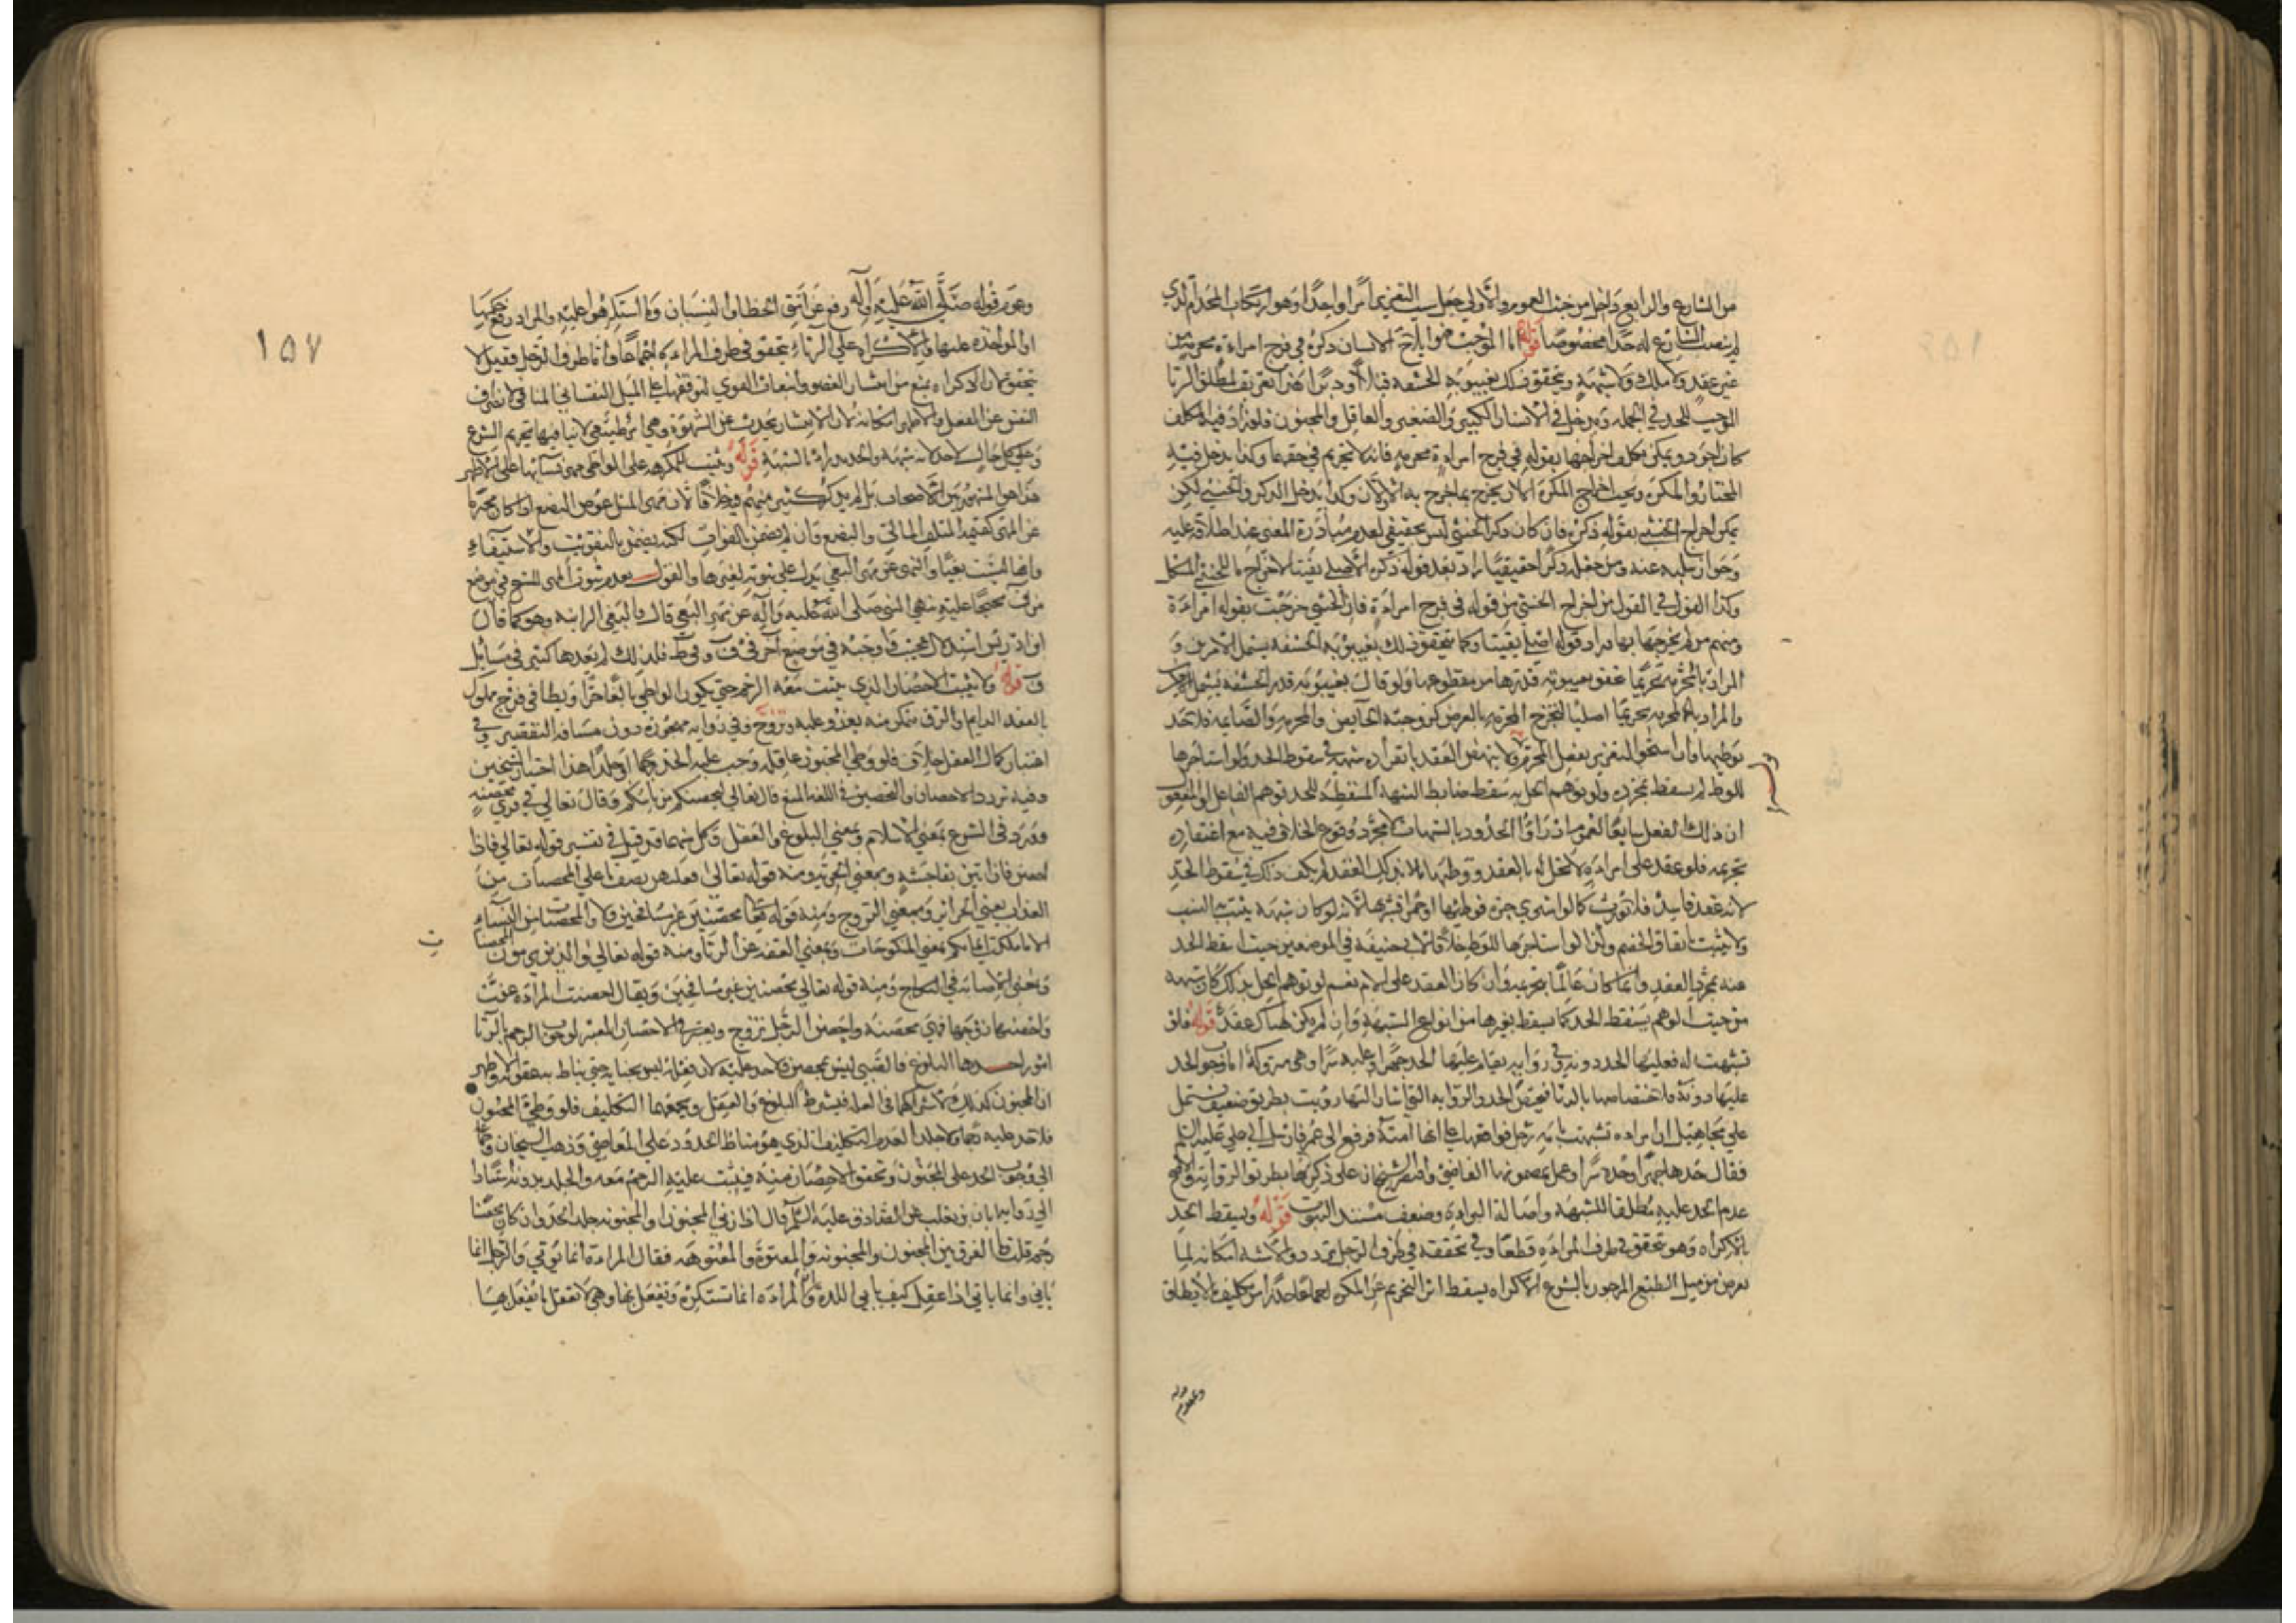 من الشارع والرابع داخل من حيث العموم والأولي جعل سبب التعزير أمرا واحدا وهو ارتكاب المحرم الذي
لم ينصب الشارع له حدا مخصوصا قوله اما الموجب فهو ايلاج الانسان ذكره في فرج امراة محرمة من
غير عقد ولا ملك ولا شبهة ويتحقق ذلك بغيبوبة الحشفة قبلا أو دبرا هذا تعريف لمطلق الزنا
الموجب للحد في الجملة ويدخل في الانسان الكبير والصغير والعاقل والمجنون فلو زاد فيه المكلف
كان اجود ويمكن تكلف اخراجها بقوله في فرج امراة محرمة فانه لا تحريم في حقهما وكذا يدخل فيه
المختار والمكره ويجب اخراج المكره الا ان يخرج بما خرج به الاولان وكذا يدخل الذكر والخنثي لكن
يمكن اخراج الخنثي بقوله ذكره فان كان ذكر الخنثي ليس بحقيقي لعدم مبادرة المعنى عند اطلاقه عليه
وجواز سلبه عنه ومن جعله ذكرا حقيقيا زاد بعد قوله ذكره الأصلي يقينا لاخراج الخنثي المشكل
وكذا القول في القول من اخراج الخنثي من قوله في فرج امراة فان الخنثي خرجت بقوله امراة
ومنهم من لم يخرجها بها فزاد قوله اصلي يقينا وكما يتحقق ذلك بغيبوبة الحشفة يشمل الامرين و
المراد بالمحرمة تحريما غيبوبة قدرها من مقطوعها ولو قال بغيبوبة قدر الحشفة يشمل الامرين
والمراد بالمحرمة تحريما اصليا لتخرج المحرمة بالعرض كزوجته الحايض والمحرمة والصايمة فلا حد
بوطيها وان استحق التعزير بفعل المحرم ولا ينهض العقد بانفراده شبهة في سقوط الحد ولو استاجرها
للوطي لم يسقط بمجرده ولو توهم الحل به سقط ضابط الشبهة المسقطة للحد توهم الفاعل او المفعول
ان ذلك الفعل سايغا لعموم ادراوا الحدود بالشبهات لا مجرد وقوع الخلاف فيه مع اعتقاده
تحريمه فلو عقد على امراة لا تحل له بالعقد ووطيها لذلك العقد لم يكف ذلك في سقوط الحد
لانه عقد فاسد فلا يورث كما لو اشترى حرة فوطيها او خمرا فشربها لانه لو كان شبهة يثبت النسب
ولا يثبت باتفاق الخصم وكذا لو استاجرها للوطي خلافا لابي حنيفة في الموضعين حيث اسقط الحد
عنه بمجرد العقد وان كان عالما بتحريمه وان كان العقد على الام نعم لو توهم الحل بذلك كان شبهة
من حيث الوهم يسقط الحد كما يسقط بغيرها من انواع الشبهة وان لم يكن هناك عقد قوله فلو
تشبهت له فعليها الحد دونه وفي رواية يقام عليها الحد جهرا وعليه سرا وهي متروكة اما وجوب الحد
عليها دونه فلاختصاصها بالزنا فيختص الحد والرواية التي اشار اليها رويت بطريق ضعيف يشتمل
على مجاهيل ان امراة تشبهت بامة رجل فواقعها على انها امته فرفع الى عمر فارسل الى علي عليه السلم
فقال حدها جهرا وحده سرا وعمل بمضمونها القاضي واقتصر الشيخان على ذكرها بطريق الرواية والاصح
عدم الحد عليه مطلقا للشبهة واصالة البراءة وضعف مستند الثبوت قوله ويسقط الحد
بالاكراه وهو يتحقق في طرف المراة قطعا وفي تحققه في طرف الرجل تردد والاشبه امكانه لما
يعرض من ميل الطبع المزجور بالشرع الاكراه يسقط اثر التحريم عن المكره اجماعا حذرا من تكليف ما لا يطاق
وعموم قوله
١٥٧
وعموم قوله صلى الله عليه وآله رفع عن امتي الخطا والنسيان وما استكرهوا عليه والمراد رفع حكمها
او المواخذه عليها والاكراه على الزنا يتحقق في طرف المراة اجماعا واما طرف الرجل فقيل لا
يتحقق لان الاكراه يمنع من انتشار العضو وانبعاث القوي لتوقفها على الميل النفساني المنافي لانصراف
النفس عن الفعل والاظهر امكانه لان الانتشار يحدث عن الشهوة وهي امر طبيعي لا ينافيها تحريم الشرع
وعلى كل حال لا حد لانه شبهة والحد يدرا بالشبهة قوله ويثبت للمكرهة على الواطي مهر نسائها على الاظهر
هذا هو المشهور بين الاصحاب بل لم يذكر كثير منهم فيه خلافا لان مهر المثل عوض البضع اذا كان محترما
عن المهر كقيمة المتلف المالي والبضع وان لم يضمن بالفوات لكنه يضمن بالتفويت والاستيفاء
وايضا ليست بغيا والنهي عن مهر البغي يدل على ثبوته لغيرها والقول بعدم ثبوت المهر للشيخ في موضع
من ف محتجا عليه بنهي النبي صلى الله عليه وآله عن مهر البغي قال والبغي الزانية وهو كما قال
ابن ادريس استدلال عجيب واوجبه في موضع آخر في ف وفي ط فلذلك لم يعدها كثير في مسايل
ف قوله ولا يثبت الاحصان الذي يثبت معه الرجم حتى يكون الواطي بالغا حرا ويطا في فرج مملوك
بالعقد الدايم والرق متمكن منه يغدو عليه ويروح وفي رواية مهجورة دون مسافة التقصير وفي
اعتبار كمال العقل خلاف فلو وطي المجنون عاقلة وجب عليه الحد رجما او جلدا هذا اختيار الشيخين
وفيه تردد الاحصان والتحصين في اللغة المنع قال تعالى ليحصنكم من باسكم وقال تعالى في قرى محصنة
وورد في الشرع بمعنى الاسلام وبمعنى البلوغ والعقل وكل منهما قد قيل في تفسير قوله تعالى فاذا
احصن فان اتين بفاحشة وبمعنى الحرية ومنه قوله تعالى فعليهن نصف ما على المحصنات من
العذاب يعني الحراير وبمعنى التزوج ومنه قوله تعا محصنين غير مسافحين والمحصنات من النساء
الا ما ملكت ايمانكم بمعنى المنكوحات وبمعنى العفة عن الزنا ومنه قوله تعالى والذين يرمون المحصنا
وبمعنى الاصابة في النكاح ومنه قوله تعالى محصنين غير مسافحين ويقال احصنت المراة عفت
واحصنها زوجها فهي محصنة واحصن الرجل تزوج ويعتبر في الاحصان المعتبر لوجوب الرجم بالزنا
امور احدها البلوغ فالصبي ليس بمحصن ولا حد عليه لان فعله ليس بجناية حتى يناط به عقوبة والاظهر
ان المجنون كذلك لاشتراكهما في العلة فيشترط البلوغ والعقل ويجمعهما التكليف فلو وطي المجنون
فلا حد عليه رجما ولا جلدا لعدم التكليف الذي هو مناط الحدود على المعاصي وذهب الشيخان وجماعة
الى وجوب الحد على المجنون وتحقق الاحصان منه فيثبت عليه الرجم معه والجلد بدونه استنادا
الى رواية ابان بن تغلب عن الصادق عليه السلم قال اذا زنى المجنون او المعتوه جلد الحد وان كان محصنا
رجم قلت ما الفرق بين المجنون والمجنونة والمعتوه والمعتوهة فقال المراة انما توتي والرجل انما
ياتي وانما ياتي اذا عقل كيف ياتي اللذة وان المراة انما تستكره ويفعل بها وهي لا تعقل ما يفعل بها